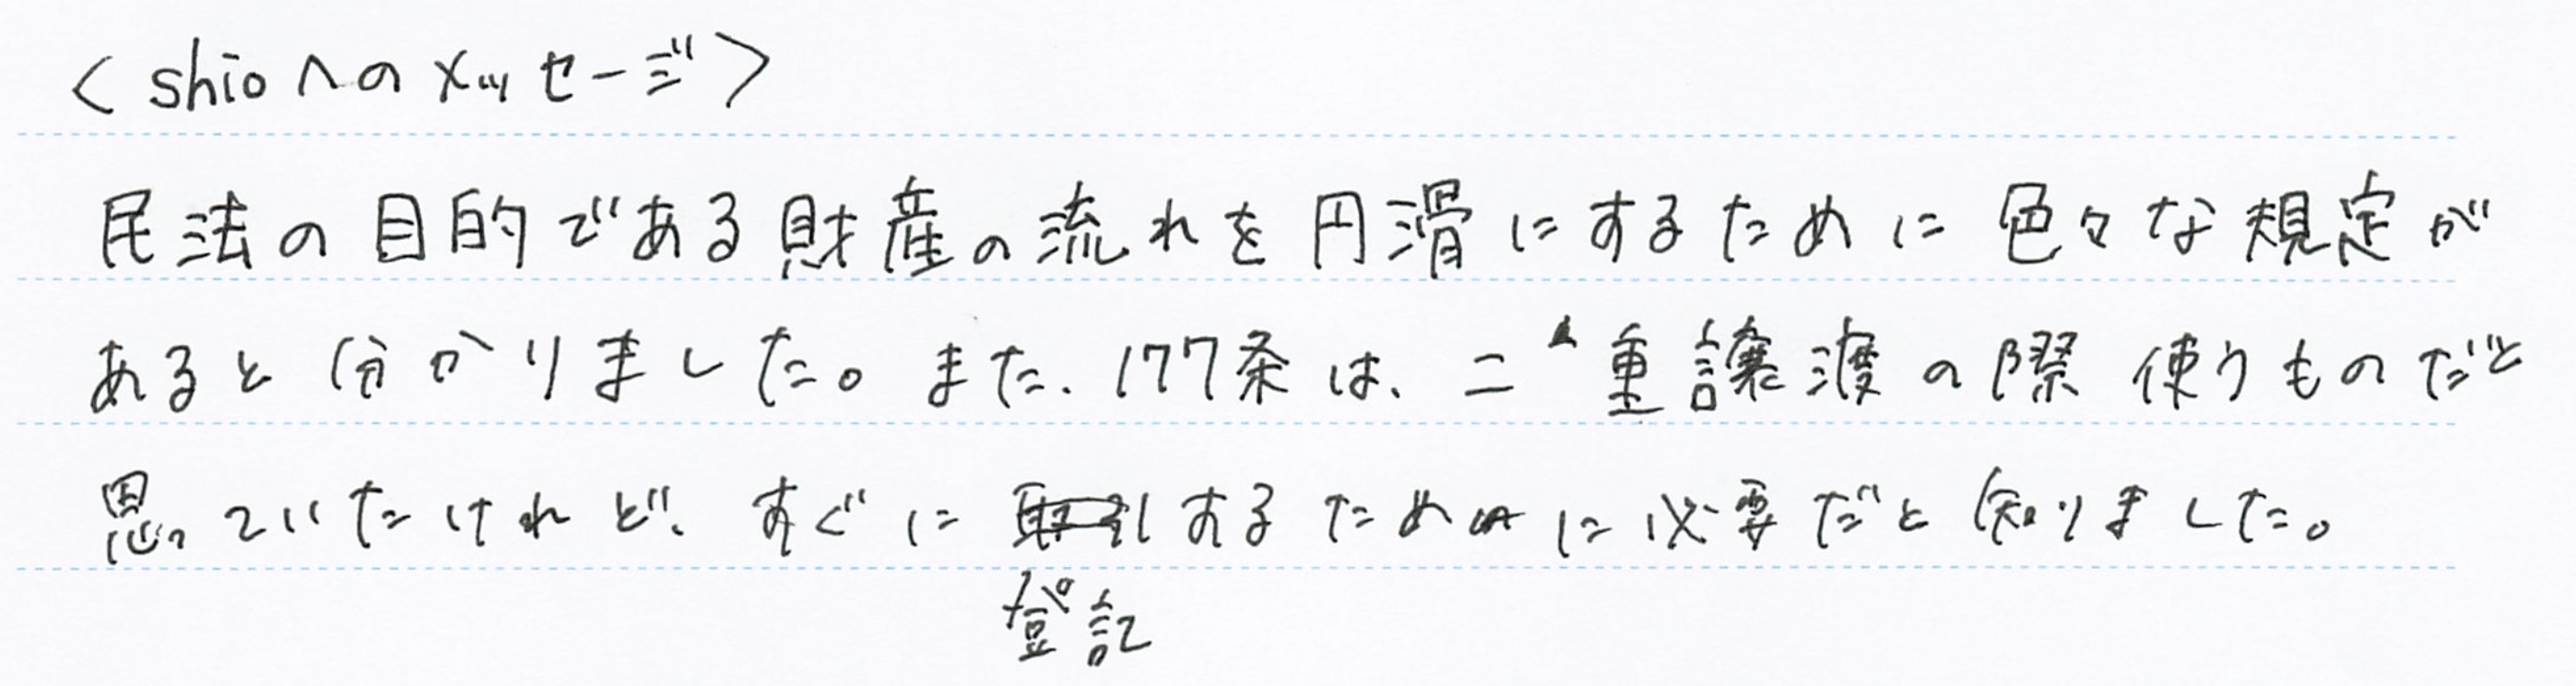 <shioへのメッセージ>
民法の目的である財産の流れを円滑にするために色々な規定が
あると分かりました。また、177条は、二重譲渡の際使うものだと
思っていたけれど、すぐに取引するために必要だと知りました。
登記